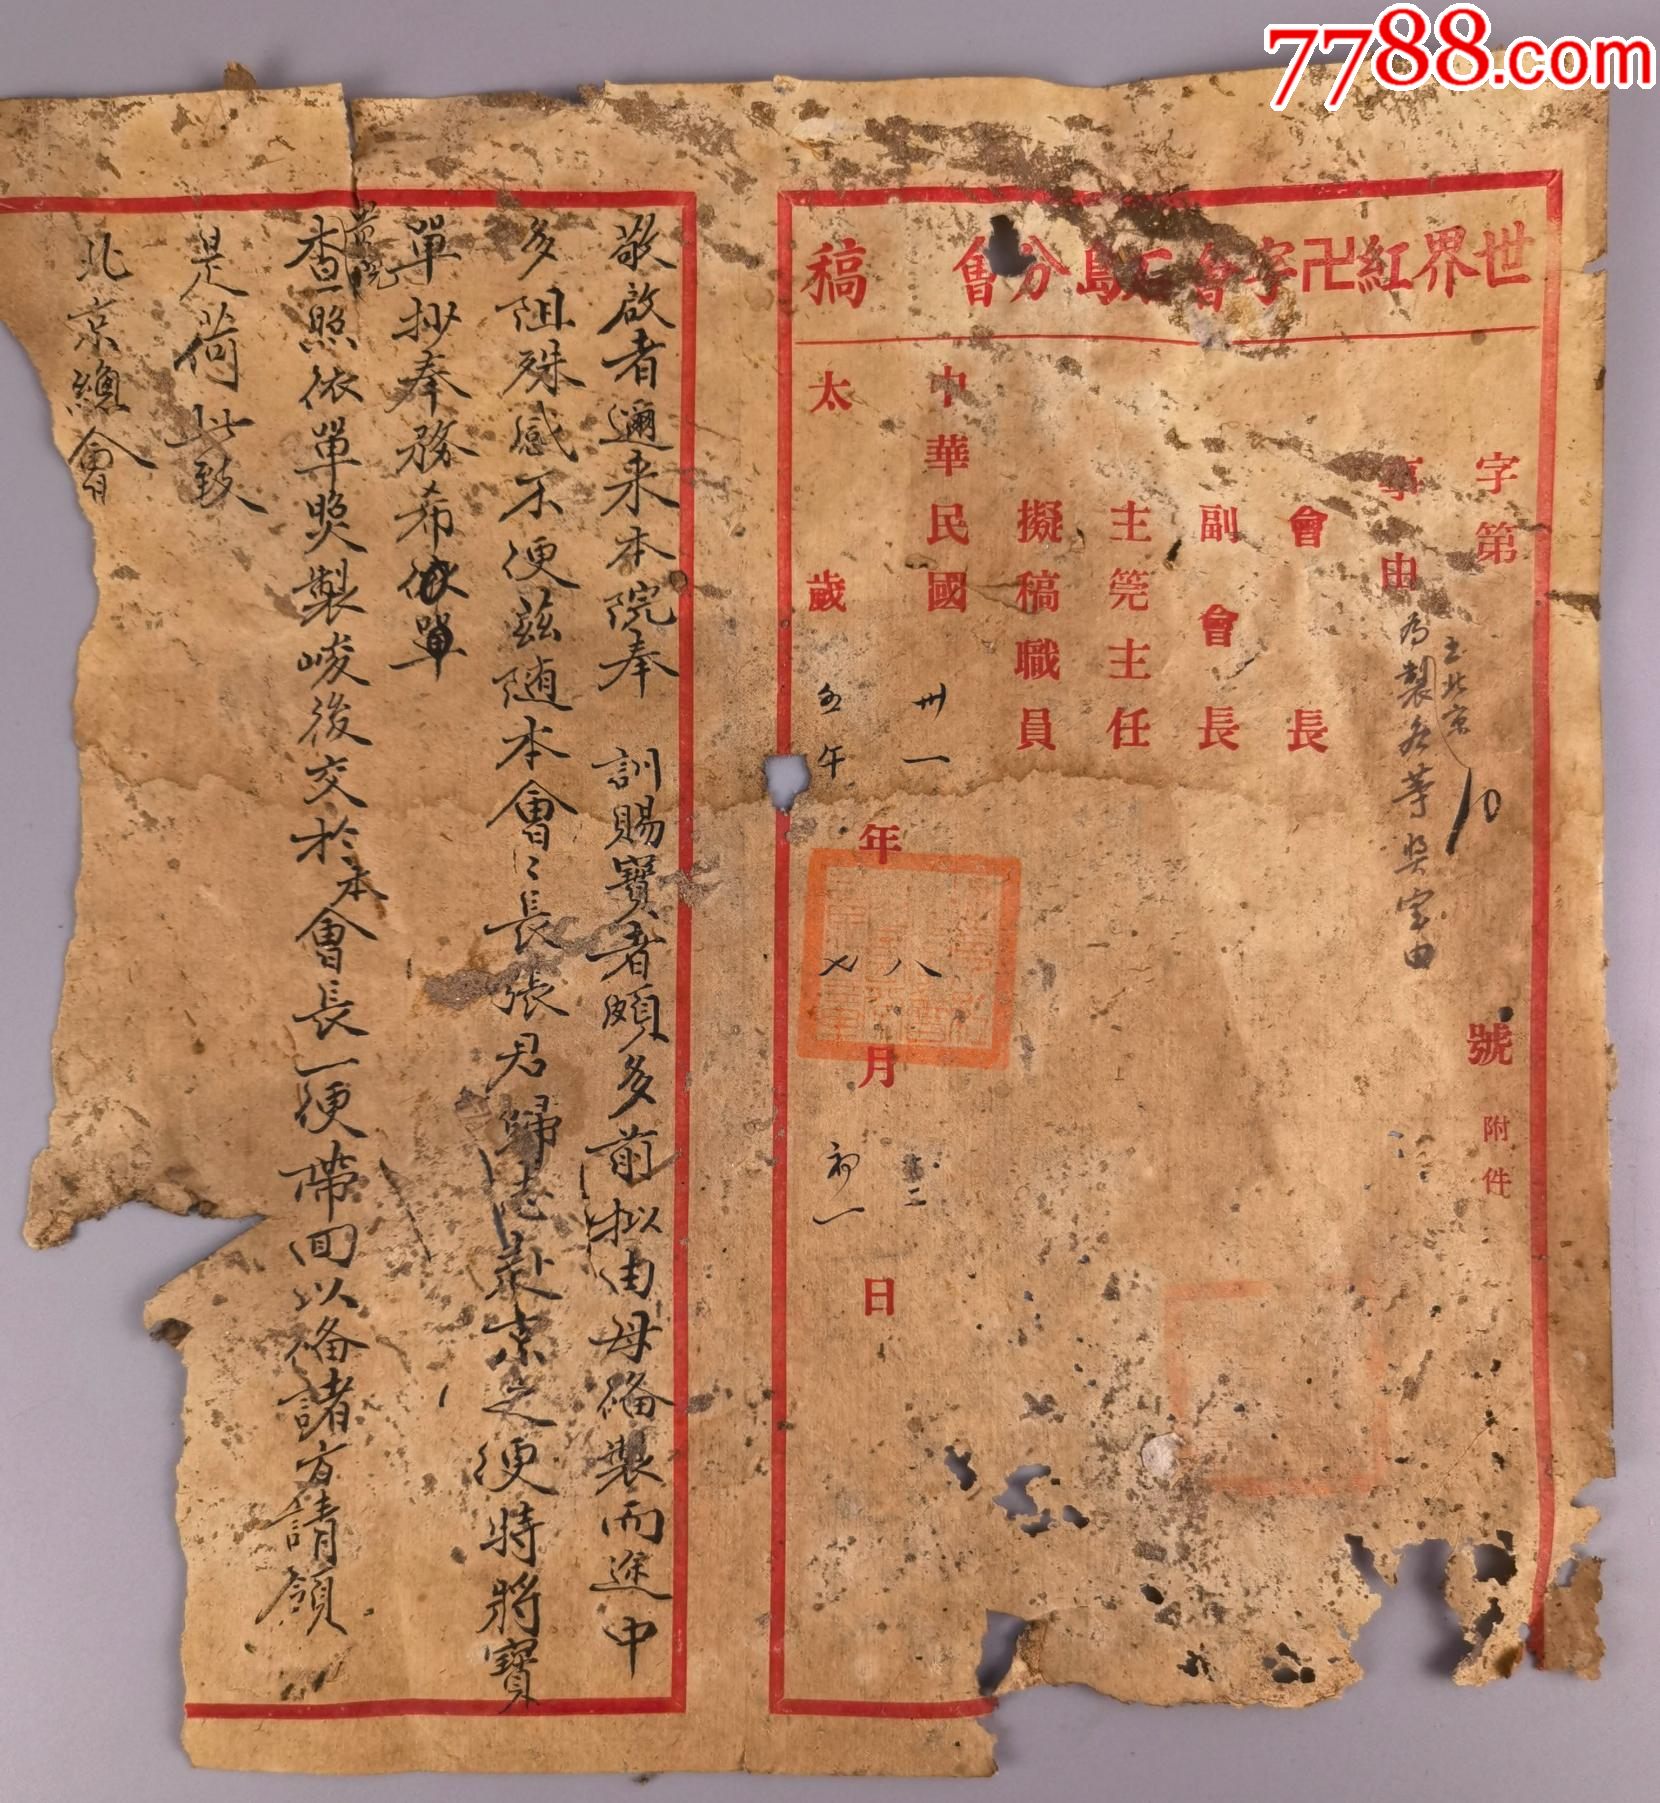 7788.com
世界紅卍字會石島分會稿
字第 10 號 附件
事由
為製各等獎宝由
主北京
會長
副會長
主筦主任
擬稿職員
中華民國卅一年八月
太歲壬午七月初一日
敬啟者邇来本院奉 訓賜寶者頗多前拟由母俻製而途中
多阻殊感不便茲随本會〻長張君歸志赴京之便特將寶
單抄奉務希依單
貴院
查照依單煚製峻後交於本會長一便帶回以俻諸方請領
是荷此致
北京總會